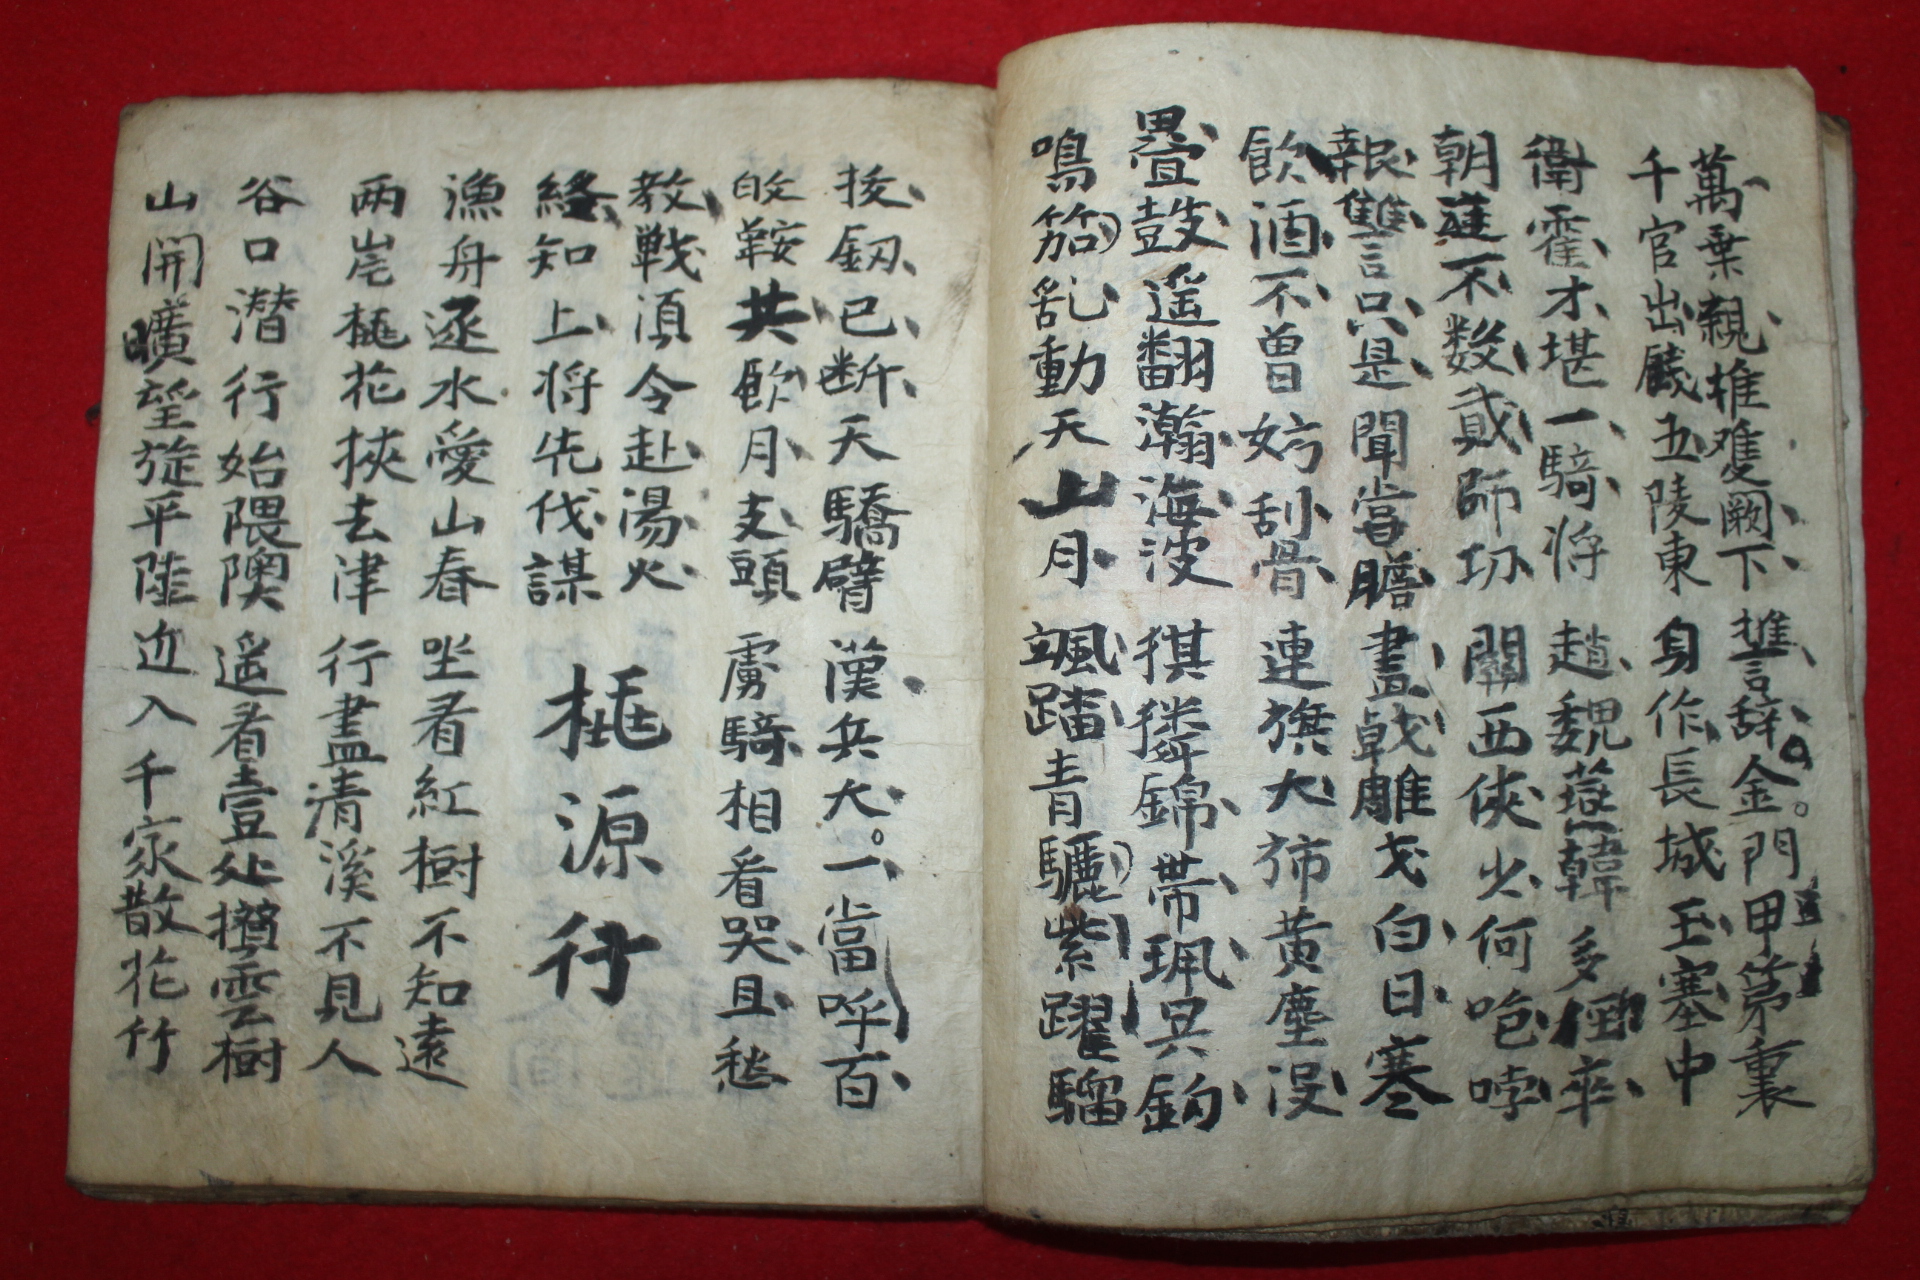 萬乗親推雙闕下
千官出餞五陵東
誓辭金門甲第裏
身作長城玉塞中
衛霍才堪一騎将
朝廷不数貳師功
趙魏燕韓多勁卒
關西俠少何咆哮
報讐只是聞嘗膽
飮酒不曽妨刮骨
畫戟雕戈白日寒
連旗大斾黄塵没
疊鼓遥翻瀚海波
鳴笳乱動天山月
麒麟錦帯珮吳鈎
颯踏青驪紫躍騮
拔釼已断天驕臂
皈鞍共飮月支頭
漢兵大一當呼百
虜騎相看哭且愁
教戦湏令赴湯火
終知上将先伐謀
桃源行
漁舟逐水愛山春
两岸桃花挾去津
坐看紅樹不知遠
行盡清溪不見人
谷口潜行始隈隩
山開曠望旋平陸
遥看壹处攅雲樹
近入千家散花竹